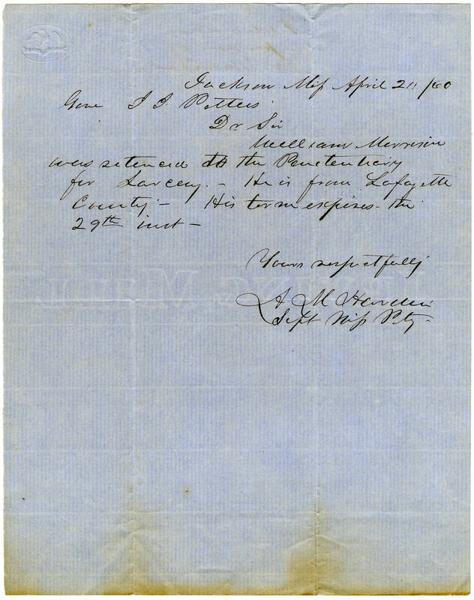 Jackson Miss April 21 /60
Gov J. J. Pettus
Dr Sir
William Morrison
was setenced to the Penetentiary
for Larceny. - He is from Lafayette
County - His term expires the
29th inst -
Yours respectfully
A M Hardin
Supt Miss Pty.